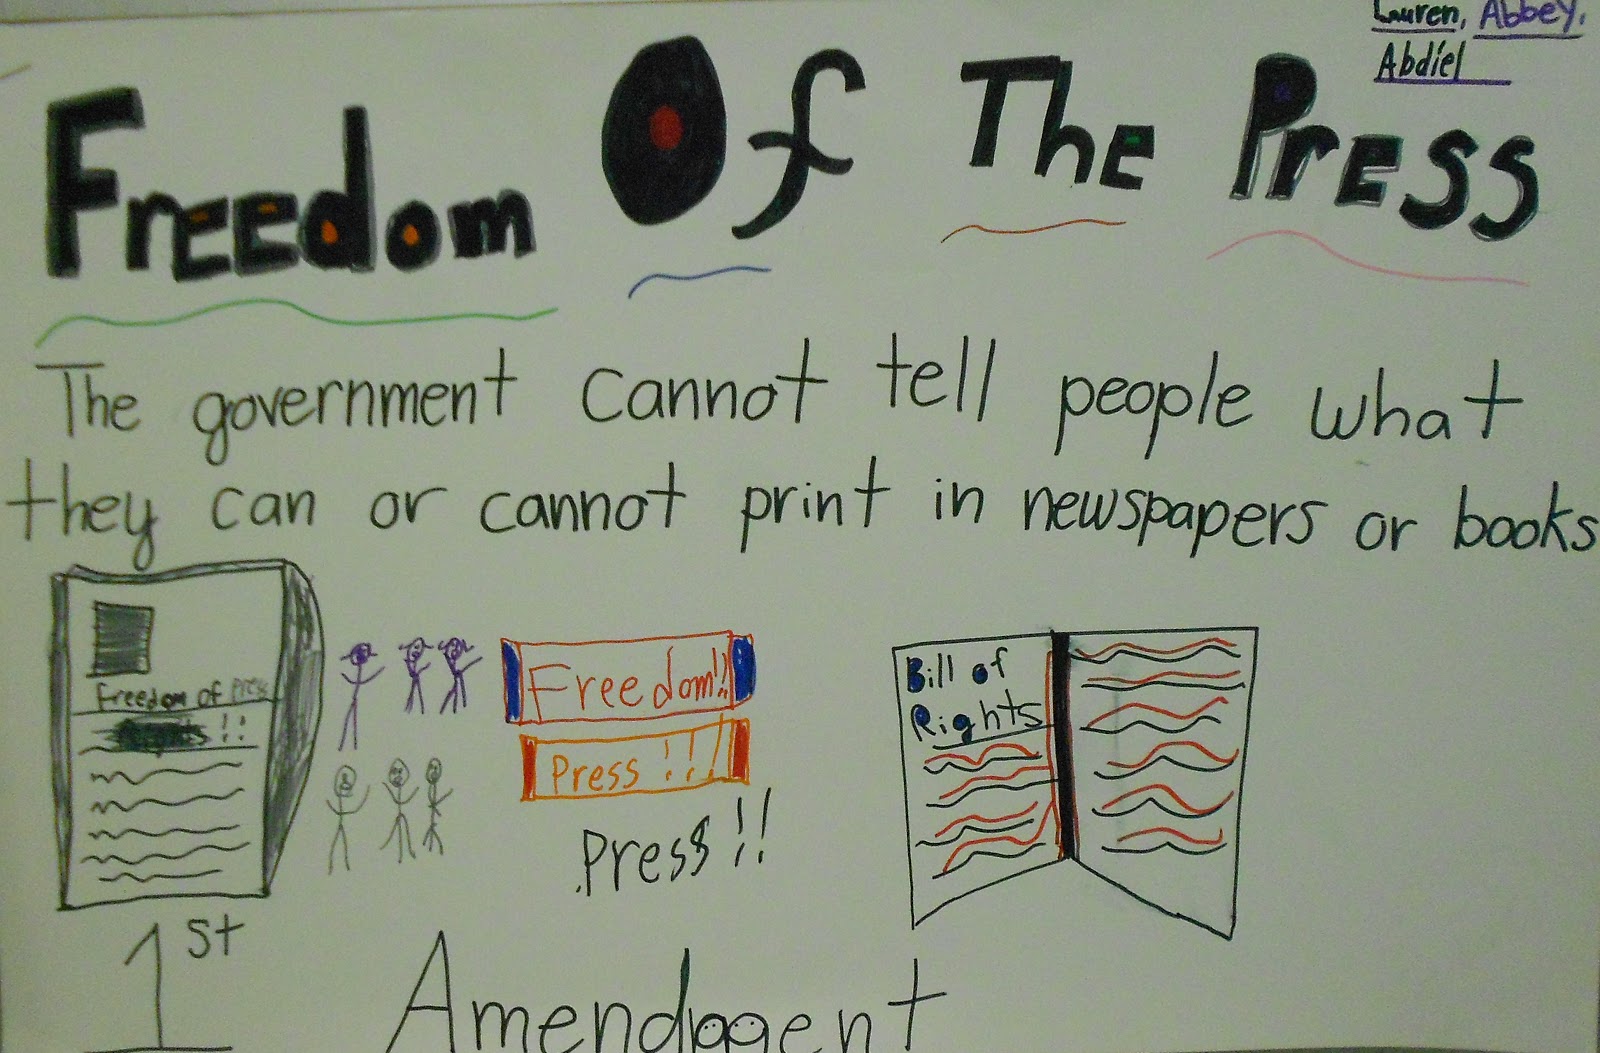 Lauren, Abbey,
Abdiel
Freedom Of The Press
The government cannot tell people what
they can or cannot print in newspapers or books
Freedom of Press
!!
Freedom!!
Press !!!
Press!!
Bill of
Rights
1st Amendment